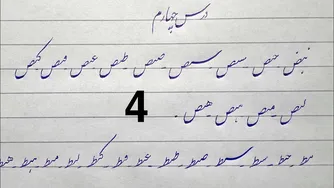 درس چهارم
حص ـ سص ـ سص ـ صص ـ طص ـ عص ـ فص ـ کص
لص ـ مص ـ هص ـ هص .
4
بط ـ حط ـ سط ـ سط ـ صط ـ طط ـ عط ـ فط ـ کط ـ لط ـ مط ـ هط ـ هط